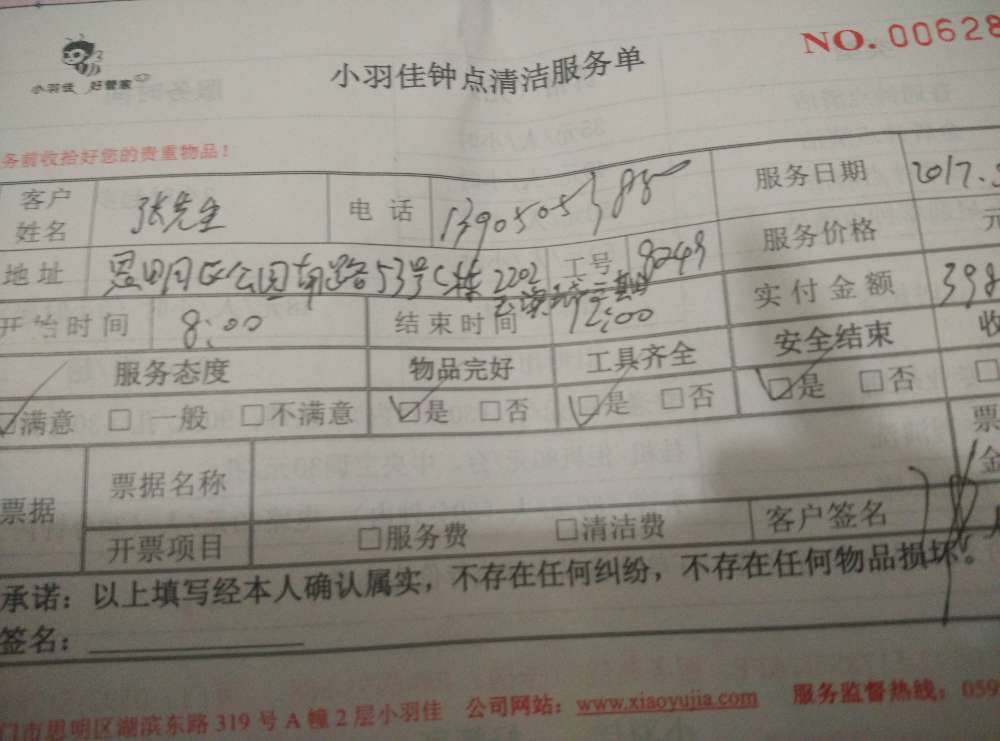 小羽佳 好管家
小羽佳钟点清洁服务单
NO. 00628
务前收拾好您的贵重物品!
客户姓名 张先生 电话 服务日期 2017.
地址 思明区公园南路53号C栋2202 工号 8249 服务价格 元
开始时间 8:00 结束时间 12:00 实付金额 398
服务态度 物品完好 工具齐全 安全结束 收
☑满意 □一般 □不满意 ☑是 □否 ☑是 □否 ☑是 □否 □
票据 票据名称 票
金
开票项目 □服务费 □清洁费 客户签名
承诺:以上填写经本人确认属实,不存在任何纠纷,不存在任何物品损坏。
签名:
门市思明区湖滨东路 319 号 A 幢 2 层小羽佳 公司网站:www.xiaoyujia.com 服务监督热线:059